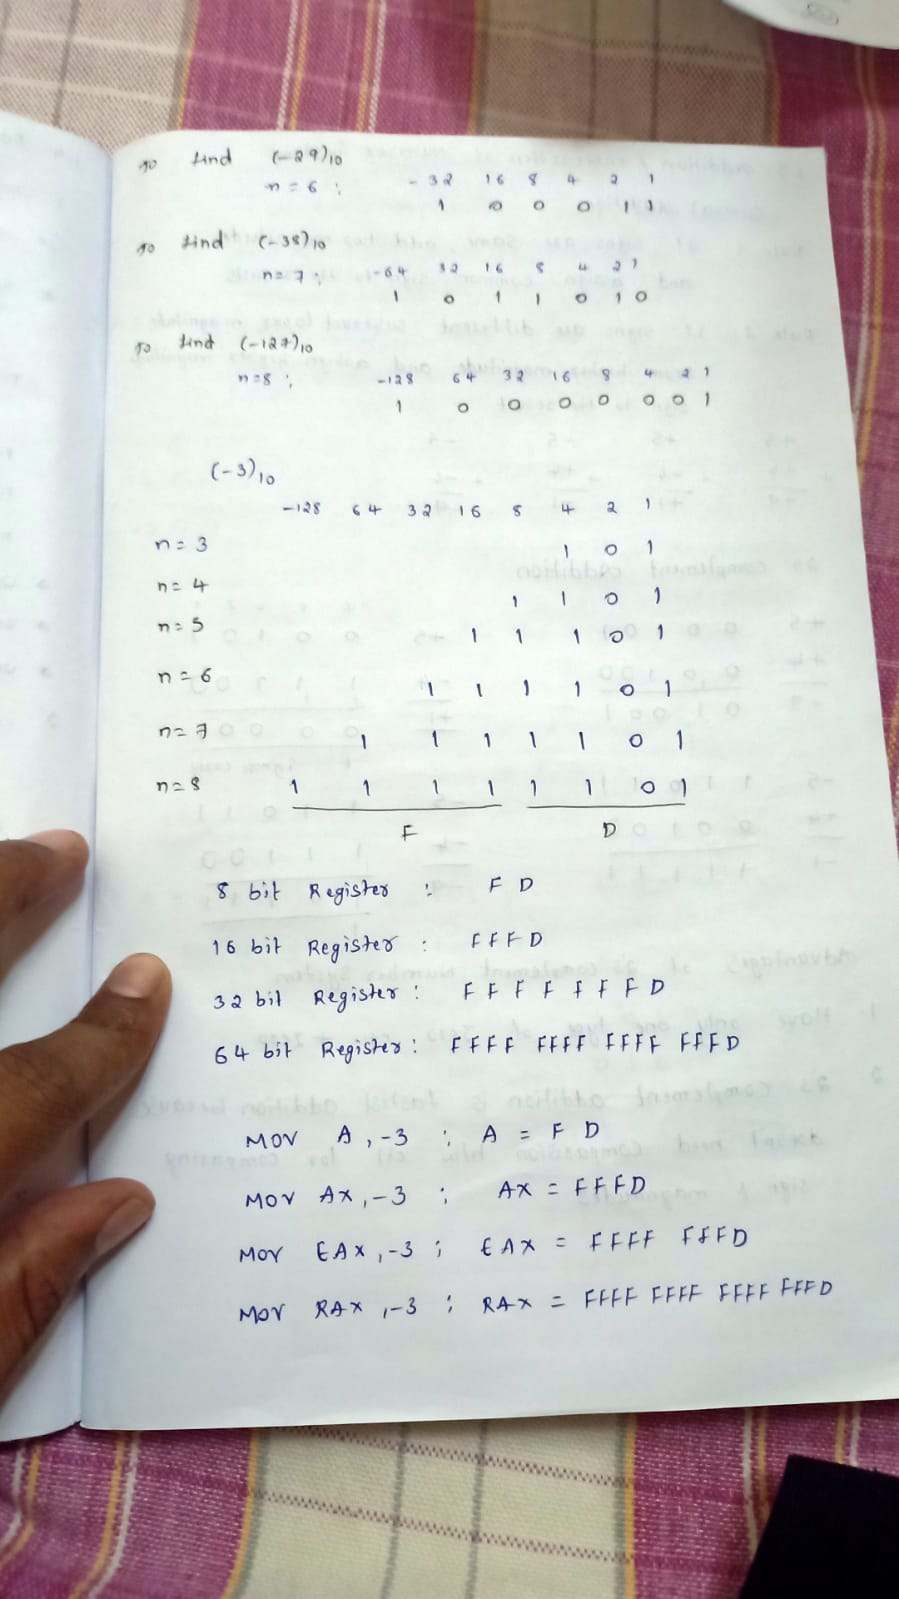 To find (-29)10
n = 6 ; -32 16 8 4 2 1
1 0 0 0 1 1
To find (-38)10
n = 7 ; -64 32 16 8 4 2 1
1 0 1 1 0 1 0
To find (-127)10
n=8 ; -128 64 32 16 8 4 2 1
1 0 0 0 0 0 0 1
(-3)10
-128 64 32 16 8 4 2 1
n = 3 1 0 1
n = 4 1 1 0 1
n = 5 1 1 1 0 1
n = 6 1 1 1 1 0 1
n = 7 1 1 1 1 1 0 1
n = 8 1 1 1 1 1 1 0 1
F D
8 bit Register : F D
16 bit Register : F F F D
32 bit Register : F F F F F F F D
64 bit Register : FFFF FFFF FFFF FFFD
MOV A , -3 ; A = F D
MOV AX , -3 ; AX = FFFD
MOV EAX , -3 ; EAX = FFFF FFFD
MOV RAX , -3 ; RAX = FFFF FFFF FFFF FFFD